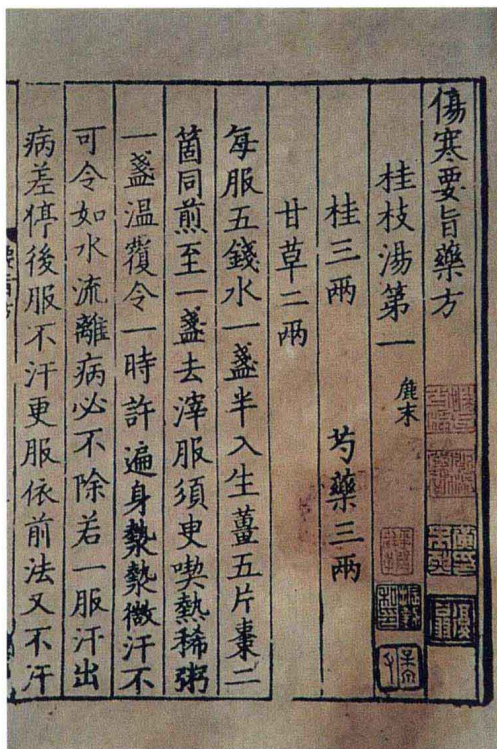 傷寒要旨藥方
桂枝湯第一 麄末
桂三兩 芍藥三兩
甘草二兩
每服五錢水一盞半入生薑五片棗二
箇同煎至一盞去滓服須㬰喫熱稀粥
一盞温覆令一時許遍身漐漐微汗不
可令如水流離病必不除若一服汗出
病差停後服不汗更服依前法又不汗